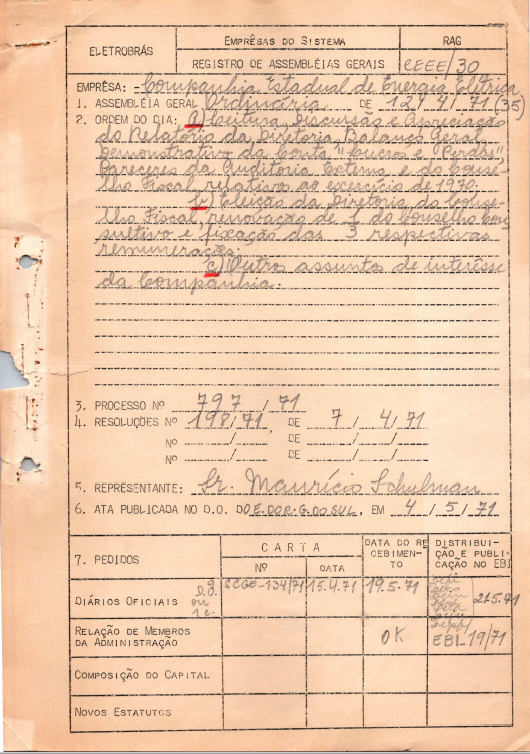 ELETROBRÁS
EMPRÊSAS DO SISTEMA
RAG
REGISTRO DE ASSEMBLÉIAS GERAIS
CEEE/30
EMPRÊSA: - Companhia Estadual de Energia Elétrica
1. ASSEMBLÉIA GERAL Ordinária DE 12/4/71 (35)
2. ORDEM DO DIA: a) Leitura, Discursão e Apreciação
do Relatório da Diretoria, Balanço Geral
Demonstrativo da Conta "Lucros e Perdas",
Pareceres da Auditoria Externa e do Conse-
lho Fiscal, relativo ao exercício de 1970.
b) Eleição da Diretoria, do Conse-
lho Fiscal, renovação de 1 do Conselho Con
sultivo e fixação das 3 respectivas
remuneração.
c) Outros assuntos de interêsse
da Companhia.
3. PROCESSO Nº 797/71
4. RESOLUÇÕES Nº 198/71, DE 7/4/71
Nº / DE / /
Nº / DE / /
5. REPRESENTANTE: Sr. Maurício Schulman
6. ATA PUBLICADA NO D.O. DO E.DO R.G.DO SUL, EM 4/5/71
7. PEDIDOS
CARTA
Nº
DATA
DATA DO RE
CEBIMEN-
TO
DISTRIBUI-
ÇÃO E PUBLI-
CAÇÃO NO EBI
DIÁRIOS OFICIAIS
D.O.
ou
SCGE-134/71
15.4.71
19.5.71
21.5.71
RELAÇÃO DE MEMBROS
DA ADMINISTRAÇÃO
OK
EBI 19/71
COMPOSIÇÃO DO CAPITAL
NOVOS ESTATUTOS